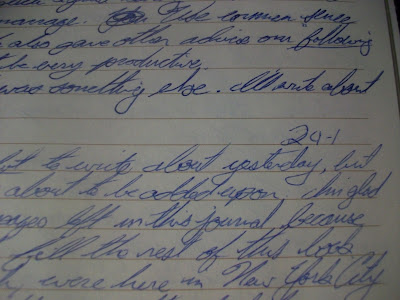 manage. Use common sense
also gave other advice on following
be very productive.
was something else. I'll write about
29-1
to write about yesterday, but
about to be added upon. I'm glad
pages left in this journal because
fill the rest of this book
were here in New York City